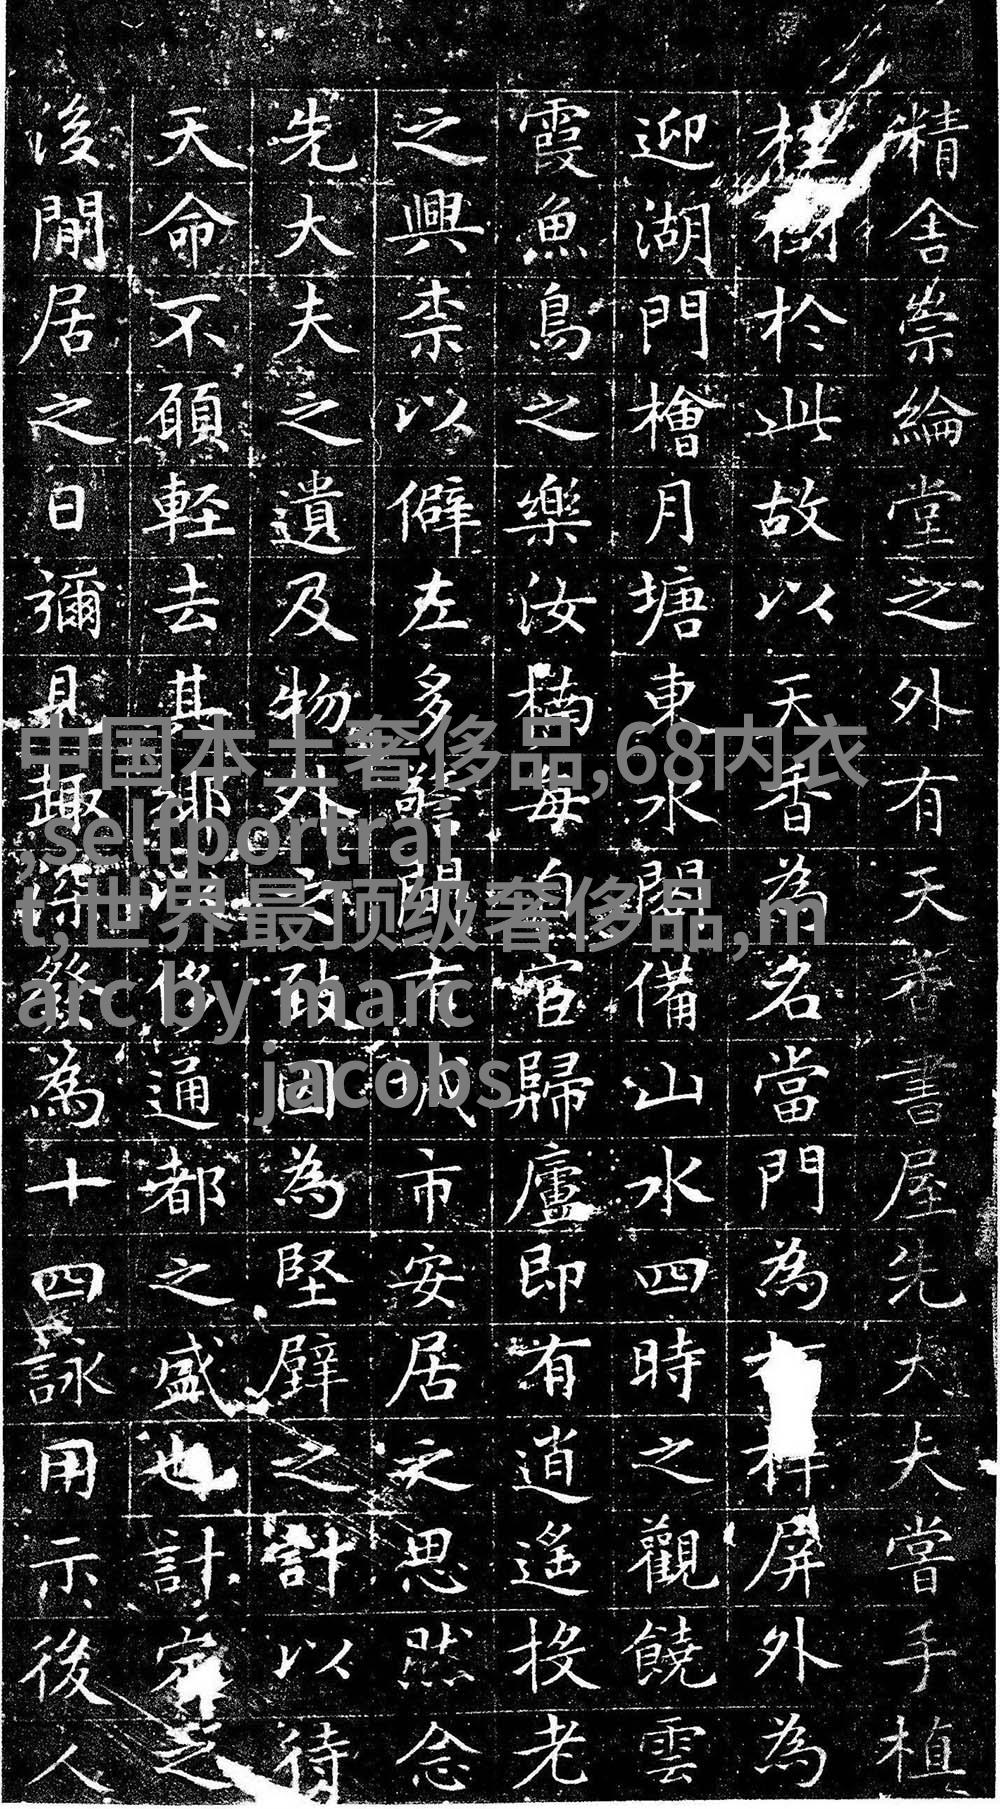 精舍崇綸堂之外有天香書屋先大夫嘗手植
桂樹於此故以天香為名當門為屏外為
迎湖門檜月塘東水閣備山水四時之觀饒雲
霞魚鳥之樂汝楠每自官歸廬即有逍遙投老
之興柰以僻左多警闕有城市安居之思然念
先大夫之遺及物外故因為堅壁之計以待
天命不願輕去其鄉侈通都之盛也計定之
後閒居之日彌見趣深發為十四詠用示後人
中国本土奢侈品,68内衣
,selfportrai
t,世界最顶级奢侈品,m
arc by marc
jacobs